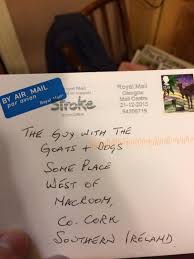 BY AIR MAIL
par avion
Royal Mail
stroke
association
Royal Mail
Glasgow
Mail Centre
21-12-2015
94306719
THE GUY WITH THE
GOATS + DOGS
SOME PLACE
WEST OF
MACROOM,
CO. CORK
SOUTHERN IRELAND